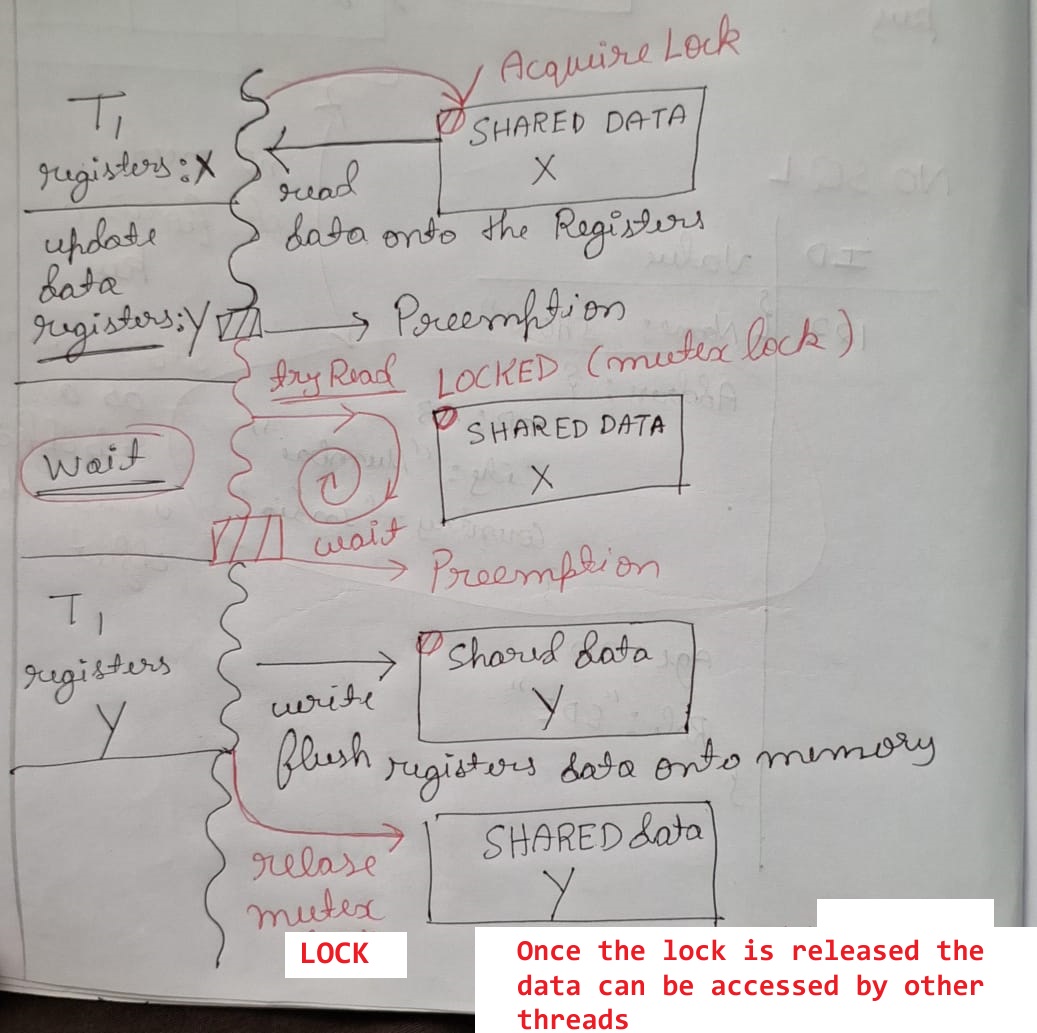 Acquire Lock
T1
registers: X
SHARED DATA
X
read
data onto the Registers
update
data
registers: Y
Preemption
try Read LOCKED (mutex lock)
SHARED DATA
X
Wait
wait
Preemption
T1
registers
Y
Shared data
Y
write
flush registers data onto memory
SHARED data
Y
relase
mutex
LOCK
Once the lock is released the
data can be accessed by other
threads